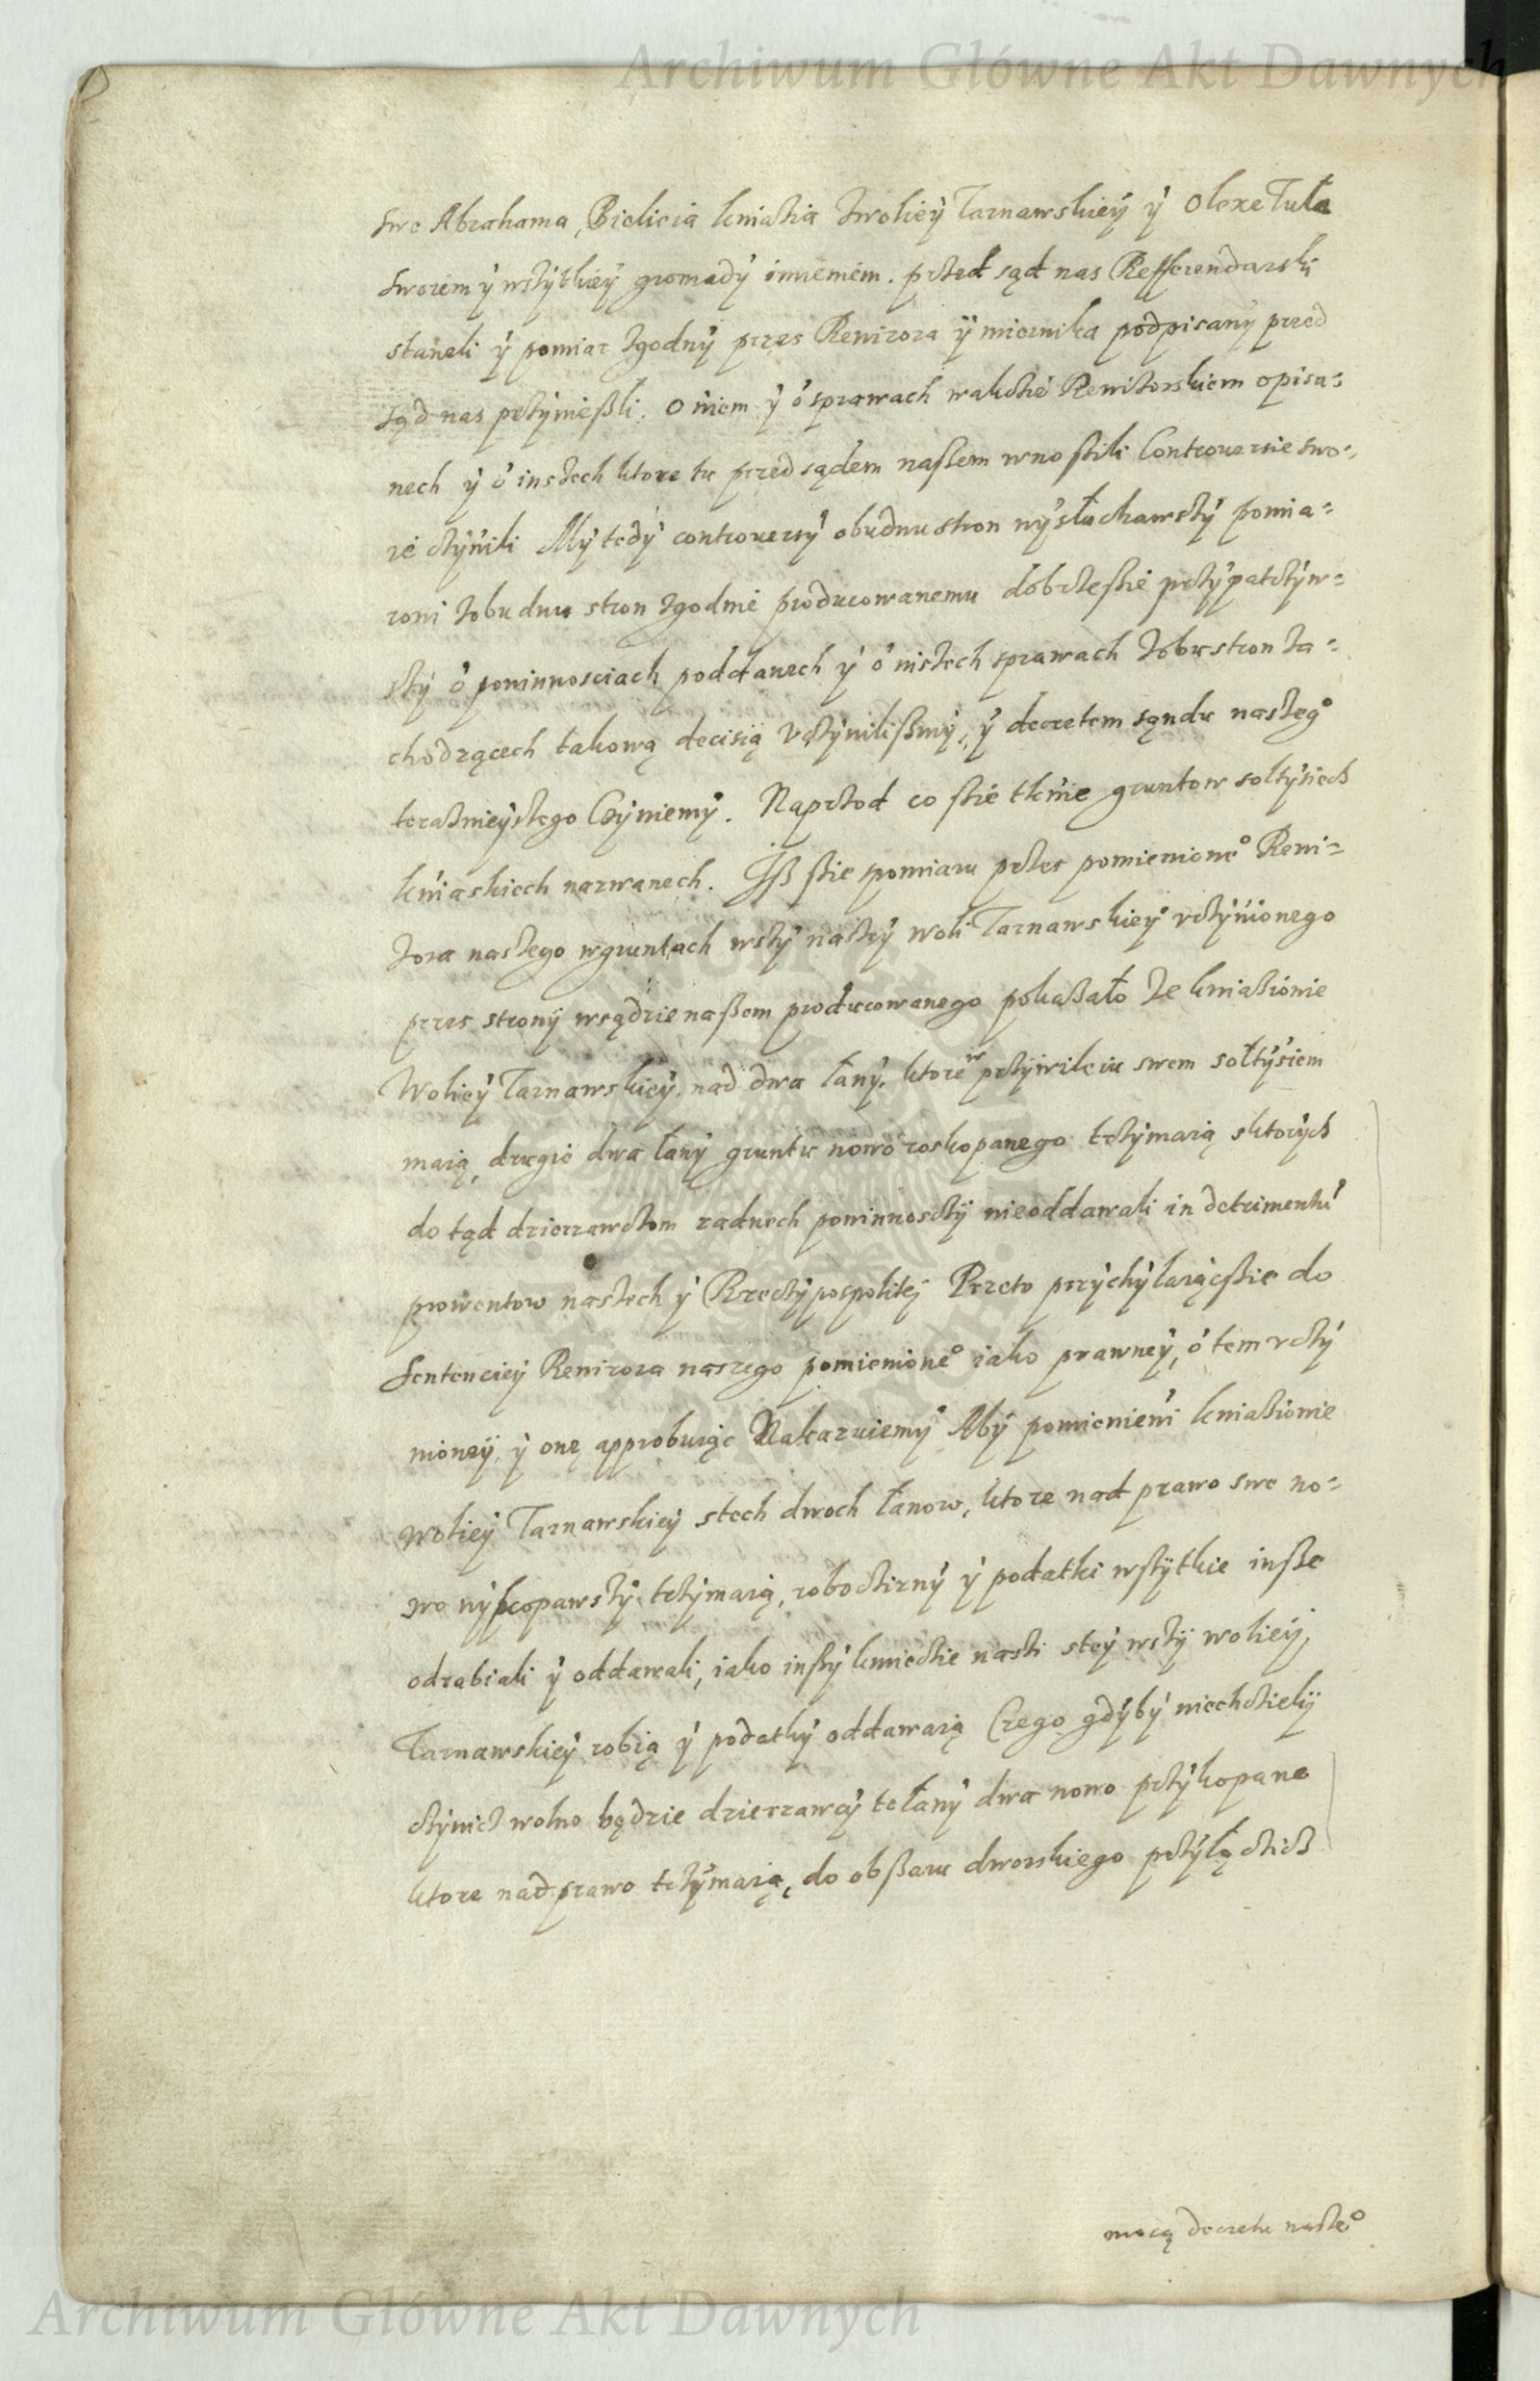 Archiwum Główne Akt Dawnych
swe Abrahama, Bielicia kniazia zwoliey Tarnawskiey ÿ Olexe Tuła
swoiem ÿ wszÿtkiey gromadÿ imieniem. przed sąd nas Refferendarski
staneli ÿ pomiar zgodnÿ przes Rewizora ÿ miernika podpisanÿ przed
sąd nas przÿnießli. O niem ÿ o sprawach wakcie Rewizorskiem opisa=
nech ÿ o inszech ktore tu przed sądem naszem wnosili Controuersie swo=
ie czÿnili Mÿ tedÿ controuersÿ obudwu stron wÿsłuchawszÿ pomia=
rowi zobu dwu stron zgodnie producowanemu dobrze sie przÿpatrzÿw=
szÿ o powinnosciach poddanech ÿ o inszech sprawach zobu stron za=
chodzącech takową decisią vczÿnilißmÿ, ÿ decretem sądu naszeg°
teraznieÿszego Czÿniemÿ. Naprzod co sie tknie gruntow soltÿsiech
kniaskiech nazwanech. Jß sie spomiaru przes pomienione° Rewi=
zora naszego wgruntach wszÿ naszÿ woli Tarnawskieÿ vczÿnionego
przes stronÿ wsądzie naßem producowanego pokazało ze kniaziowie
Wolieÿ Tarnawskieÿ nad dwa łanÿ. ktore w przÿwileiu swem sołtÿsiem
maią, drugie dwa łanÿ gruntu nowo roskopanego trzÿmaią sktorÿch
do tąd dzierzawczom zadnech powinnosczÿ nieoddawali in detrimentū
prowentow naszech ÿ Rzeczÿpospolitej Przeto przÿchÿlaiącsie do
Sentencieÿ Rewizora naszego pomienione° iako prawneÿ, o tem vczÿ
nioneÿ, ÿ onę approbuiąc Nakazuiemÿ Abÿ pomienieni kniaziowie
wolieÿ Tarnawskieÿ stech dwoch łanow, ktore nad prawo swe no=
wo wÿkopawszÿ trzÿmaią, roboczisnÿ ÿ podatki wszÿtkie insze
odrabiali ÿ oddawali, iako inszÿ kmiecie naszi steÿ wszÿ wolieÿ,
Tarnawskieÿ robią ÿ podatkÿ oddawaią Czego gdÿbÿ niechcielÿ
czÿnicz wolno będzie dzierzawcÿ te łanÿ dwa nowo przÿkopane
ktore nad prawo trzÿmaią, do obszaru dworskiego przÿłączicz
mocą decretu nasze°
Archiwum Główne Akt Dawnych